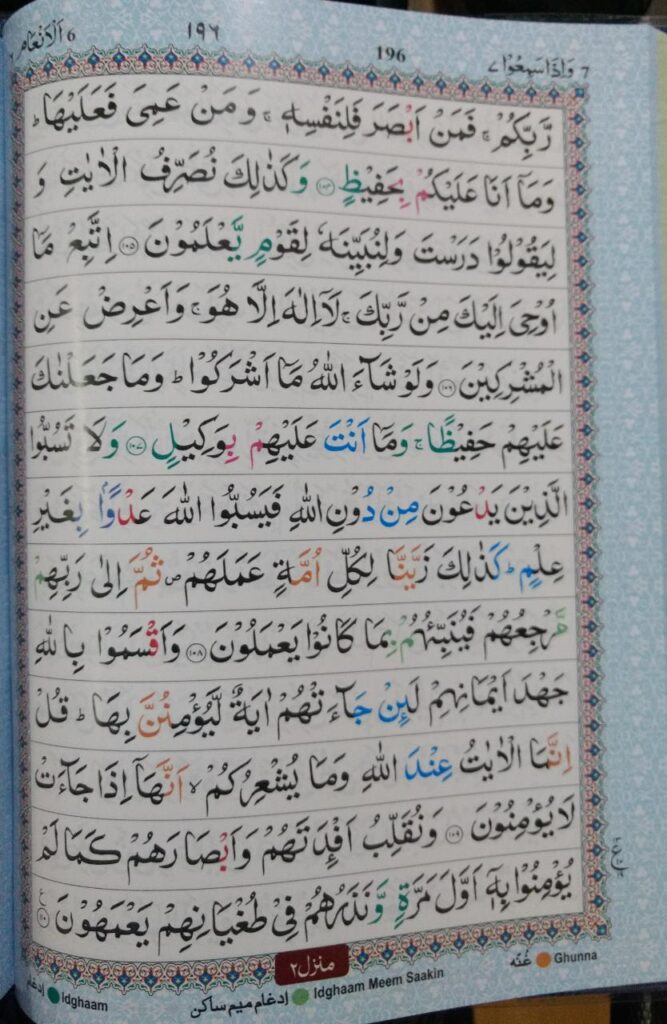 6 اَلْاَنْعَام ١٩٦ 196 وَاِذَا سَمِعُوْا ٧ 7
رَّبِّكُمْ ۚ فَمَنْ اَبْصَرَ فَلِنَفْسِهٖ ۚ وَمَنْ عَمِىَ فَعَلَيْهَا ؕ
وَمَاۤ اَنَا عَلَيْكُمْ بِحَفِيْظٍ ﴿۱۰۴﴾ وَكَذٰلِكَ نُصَرِّفُ الْاٰيٰتِ وَ
لِيَقُوْلُوْا دَرَسْتَ وَلِنُبَيِّنَهٗ لِقَوْمٍ يَّعْلَمُوْنَ ﴿۱۰۵﴾ اِتَّبِعْ مَاۤ
اُوْحِىَ اِلَيْكَ مِنْ رَّبِّكَ ۚ لَاۤ اِلٰهَ اِلَّا هُوَ ۚ وَاَعْرِضْ عَنِ
الْمُشْرِكِيْنَ ﴿۱۰۶﴾ وَلَوْ شَآءَ اللّٰهُ مَاۤ اَشْرَكُوْا ؕ وَمَا جَعَلْنٰكَ
عَلَيْهِمْ حَفِيْظًا ۚ وَمَاۤ اَنْتَ عَلَيْهِمْ بِوَكِيْلٍ ﴿۱۰۷﴾ وَلَا تَسُبُّوا
الَّذِيْنَ يَدْعُوْنَ مِنْ دُوْنِ اللّٰهِ فَيَسُبُّوا اللّٰهَ عَدْوًۢا بِغَيْرِ
عِلْمٍ ؕ كَذٰلِكَ زَيَّنَّا لِكُلِّ اُمَّةٍ عَمَلَهُمْ ۪ ثُمَّ اِلٰى رَبِّهِمْ
مَّرْجِعُهُمْ فَيُنَبِّئُهُمْ بِمَا كَانُوْا يَعْمَلُوْنَ ﴿۱۰۸﴾ وَاَقْسَمُوْا بِاللّٰهِ
جَهْدَ اَيْمَانِهِمْ لَئِنْ جَآءَتْهُمْ اٰيَةٌ لَّيُؤْمِنُنَّ بِهَا ؕ قُلْ
اِنَّمَا الْاٰيٰتُ عِنْدَ اللّٰهِ وَمَا يُشْعِرُكُمْ ۙ اَنَّهَاۤ اِذَا جَآءَتْ
لَا يُؤْمِنُوْنَ ﴿۱۰۹﴾ وَنُقَلِّبُ اَفْـِٕدَتَهُمْ وَاَبْصَارَهُمْ كَمَا لَمْ
يُؤْمِنُوْا بِهٖۤ اَوَّلَ مَرَّةٍ وَّنَذَرُهُمْ فِىْ طُغْيَانِهِمْ يَعْمَهُوْنَ ﴿۱۱۰﴾ ع
منزل٢
غُنّه Ghunna ادغام میم ساکن Idghaam Meem Saakin ادغام Idghaam